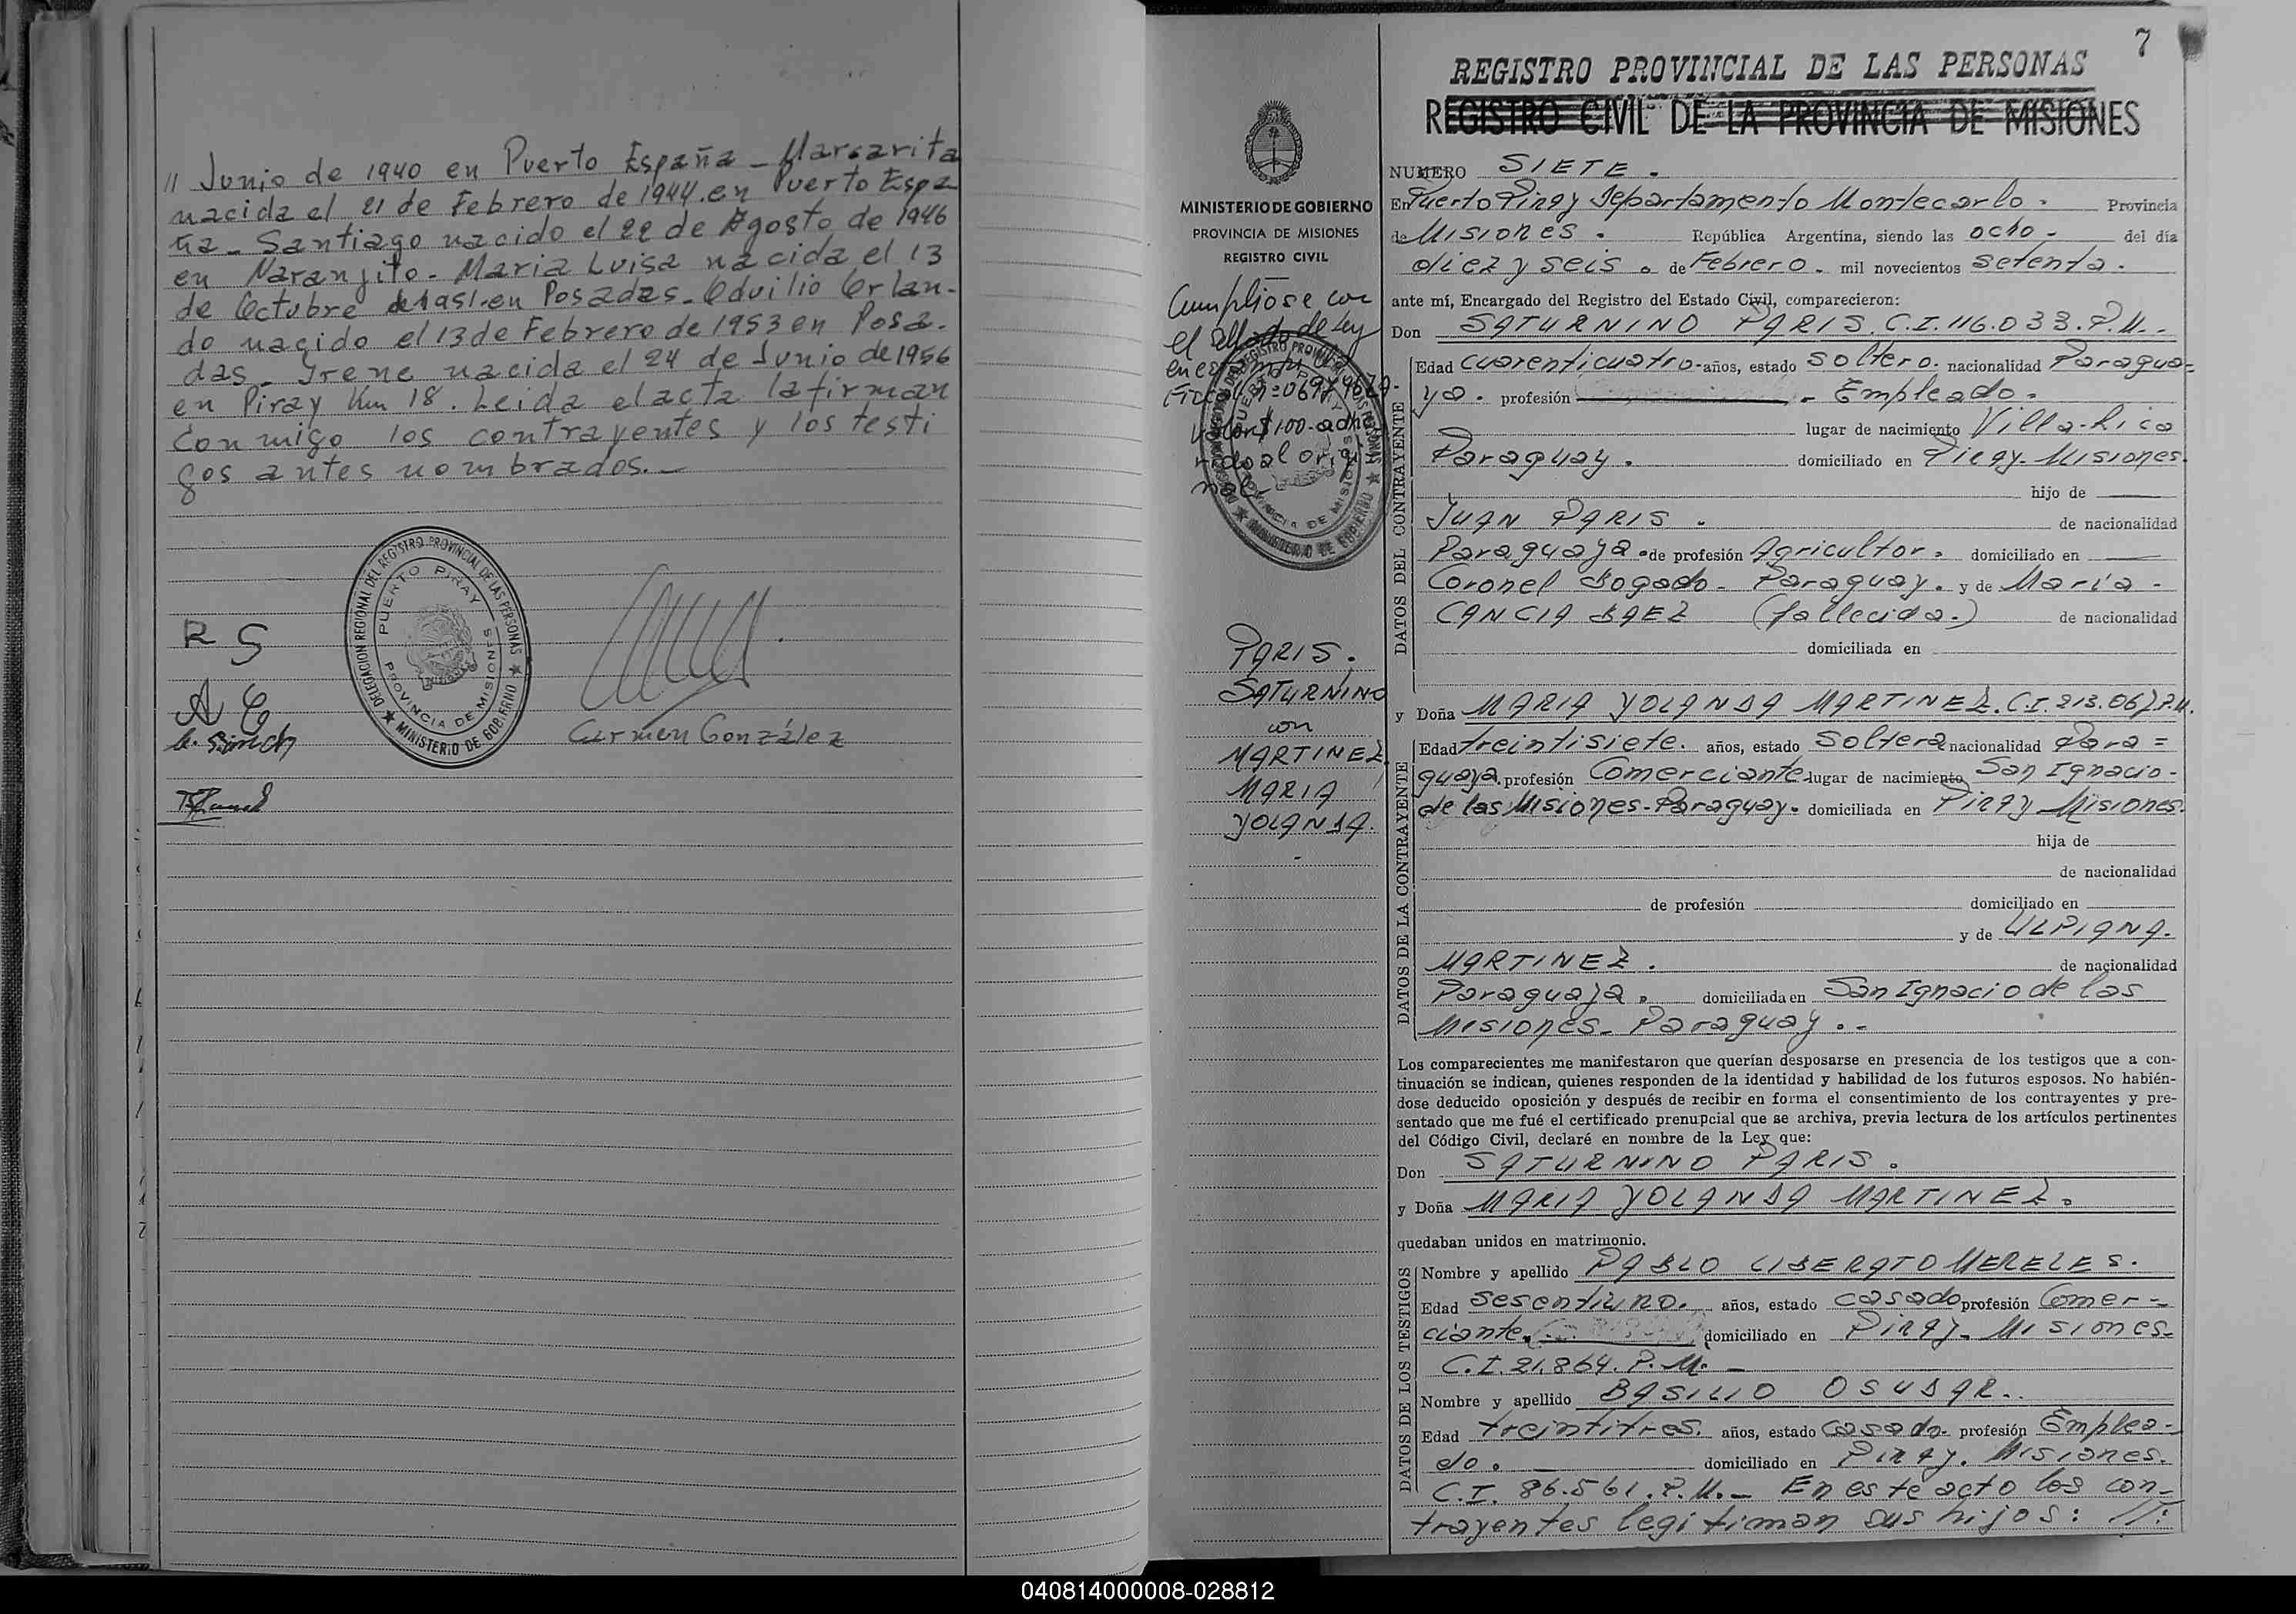 // Junio de 1940 en Puerto España - Margarita
nacida el 21 de Febrero de 1944. en Puerto Espa
ña - Santiago nacido el 22 de Agosto de 1946
en Naranjito - Maria Luisa nacida el 13
de Octubre de 1951. en Posadas - Oduilio Orlan-
do nacido el 13 de Febrero de 1953 en Posa-
das - Irene nacida el 24 de Junio de 1956
en Piray Km 18. Leida el acta la firman
conmigo los contrayentes y los testi
gos antes nombrados. -
R S
DELEGACION REGIONAL DEL REGISTRO PROVINCIAL DE LAS PERSONAS
PUERTO PIRAY
PROVINCIA DE MISIONES
MINISTERIO DE GOBIERNO
Carmen González
7
REGISTRO PROVINCIAL DE LAS PERSONAS
REGISTRO CIVIL DE LA PROVINCIA DE MISIONES
MINISTERIO DE GOBIERNO
PROVINCIA DE MISIONES
REGISTRO CIVIL
Cumpliose con
el sellado de ley
valor $ 100 - adhe
rido al origi
nal -
PARIS.
SATURNINO
con
MARTINEZ
MARIA
YOLANDA.
NUMERO SIETE.
En Puerto Piray Departamento Montecarlo. Provincia
de Misiones. República Argentina, siendo las ocho - del día
diez y seis. de Febrero. mil novecientos setenta.
ante mí, Encargado del Registro del Estado Civil, comparecieron:
Don SATURNINO PARIS. C.I. 116.033. P.M.-
DATOS DEL CONTRAYENTE
Edad cuarenticuatro- años, estado soltero. nacionalidad Paragua=
ya. profesión - Empleado.
lugar de nacimiento Villa-Rica
Paraguay. domiciliado en Piray-Misiones.
hijo de
JUAN PARIS. de nacionalidad
Paraguaya. de profesión Agricultor. domiciliado en
Coronel Bogado - Paraguay. y de Maria -
CANCIA BAEZ (fallecida.) de nacionalidad
domiciliada en
y Doña MARIA YOLANDA MARTINEZ. C.I. 213.067 P.M.
DATOS DE LA CONTRAYENTE
Edad treintisiete. años, estado Soltera nacionalidad Para=
guaya. profesión Comerciante lugar de nacimiento San Ignacio-
de las Misiones-Paraguay. domiciliada en Piray Misiones.
hija de
de nacionalidad
de profesión domiciliado en
y de ULPIANA.
MARTINEZ. de nacionalidad
Paraguaya. domiciliada en San Ignacio de las
Misiones - Paraguay. -
Los comparecientes me manifestaron que querían desposarse en presencia de los testigos que a con-
tinuación se indican, quienes responden de la identidad y habilidad de los futuros esposos. No habién-
dose deducido oposición y después de recibir en forma el consentimiento de los contrayentes y pre-
sentado que me fué el certificado prenupcial que se archiva, previa lectura de los artículos pertinentes
del Código Civil, declaré en nombre de la Ley que:
Don SATURNINO PARIS.
y Doña MARIA YOLANDA MARTINEZ.
quedaban unidos en matrimonio.
DATOS DE LOS TESTIGOS
Nombre y apellido PABLO LIBERATO MERELES.
Edad sesentiuno. años, estado casado profesión Comer-
ciante. domiciliado en Piray - Misiones-
C.I. 21.864. P.M. -
Nombre y apellido BASILIO OSUDAR..
Edad treintitres. años, estado casado- profesión Emplea-
do. domiciliado en Piray. Misiones.
C.I. 86.561. P.M. - En este acto los con-
trayentes legitiman sus hijos: //:
040814000008-028812